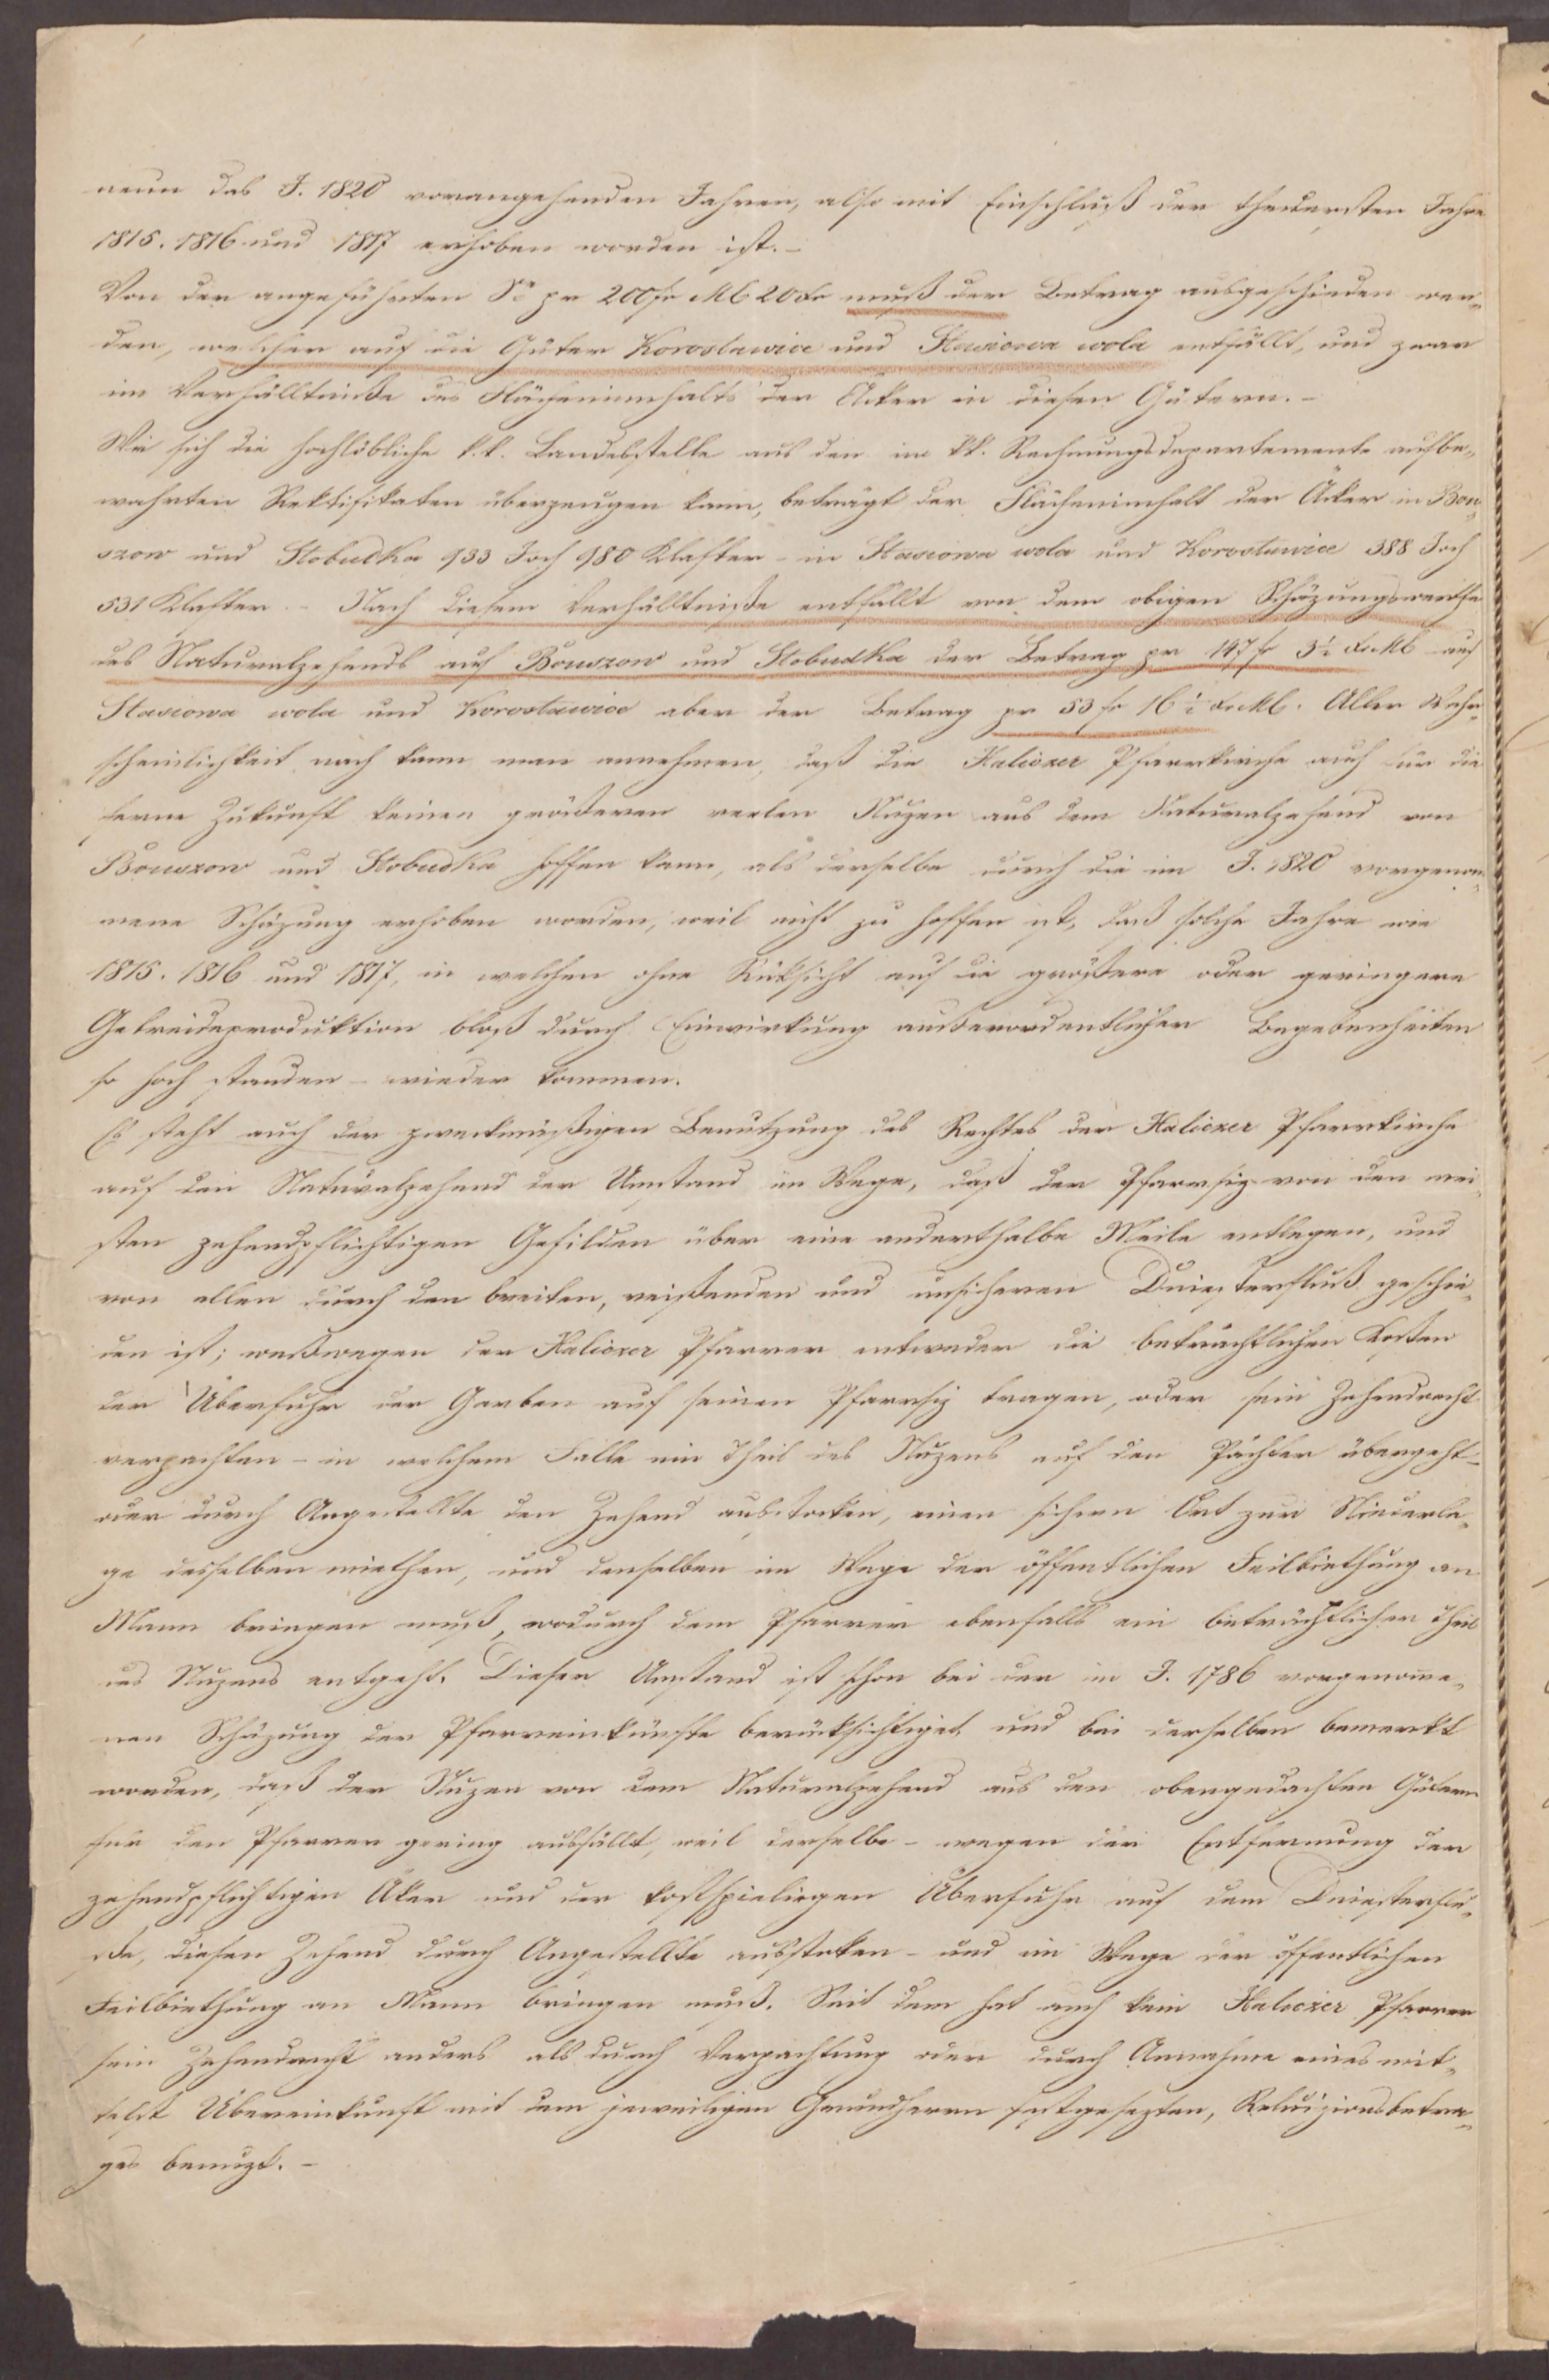 neun das J. 1820 vorangehenden Jahren, also mit Einschluß der theuersten Jahre
1815. 1816 und 1817 erhoben worden ist. –
Von der angeführten Se pr 200 fr Mb 20 Xr muß der Betrag ausgeschieden wer„
den, welcher auf die Güter Korostowice und Stasiowa wola entfällt, und zwar
im Verhälltniße des Flächeninnhalts der Äcker in diesen Gütern. –
Wie sich die hochlöbliche k.k. Landesstelle aus den im kk. Rechnungsdepartemente aufbe„
wahrten Rektifikaten überzeugen kann, beträgt der Flächeninhalt der Äcker in Bou„
szow und Stobudka 933 Joch 980 Klafter – in Stasiowa wola und Korostowice 388 Joch
531 Klafter. – Nach diesem Verhälltniße entfällt von dem obigen Schäzungswerthe
des Naturalzehends auf Bouszow und Stobudka der Betrag pr 147 fr 3 Xr Mb auf
Stasiowa wola und Korostowice aber der Betrag pr 53 fr 16 Xr Mb. Aller Wahr„
scheinlichkeit nach kann man annehmen, daß die Haliczer Pfarrkirche auch für die
ferne Zukunft keinen größeren reelen Nuzen aus dem Naturalzehend von
Bouszow und Stobudka hoffen kann, als derselbe durch die im J. 1820 vorgenom„
mene Schäzung erhoben worden, weil nicht zu hoffen ist, daß solche Jahre wie
1815. 1816 und 1817, in welchen ohne Rüksicht auf die größere oder geringere
Getreideproduktion bloß durch Einwirkung außerordentlicher Begebenheiten
so hoch standen – wieder kommen.
Es steht auch der zweckmäßigen Benutzung des Rechtes der Haliczer Pfarrkirche
auf den Naturalzehend der Umstand im Wege, daß der Pfarrsiz von den mei„
sten zehendpflichtigen Gefilden über eine anderthalbe Meile entlegen, und
von allen durch den breiten, reißenden und unsicheren Dniesterfluß geschie„
den ist; weßwegen der Haliczer Pfarrer entweder die beträchtlichen Kosten
der Überfuhr der Garben auf seinen Pfarrsiz tragen, oder sein Zehendrecht
verpachten – in welchem Falle ein Theil des Nuzens auf den Pächter übergeht –
oder durch Angestellte den Zehend ausstecken, einen sichern Ort zur Niederla„
ge desselben miethen, und denselben im Wege der öffentlichen Feilbiethung an
Mann bringen muß, wodurch dem Pfarrer ebenfalls ein beträchtlicher Theil
des Nuzens entgeht. Dieser Umstand ist schon bei der im J. 1786 vorgenomme„
nen Schäzung der Pfarreinkünfte berücksichtiget und bei derselben bemerkt
worden, daß der Nuzen von dem Naturalzehend aus den obengedachten Gütern
für den Pfarrer gering ausfällt, weil derselbe – wegen der Entfernung der
zehendpflichtigen Äker und der kostspieligen Überfuhr auf dem Dniesterflu„
ße, diesen Zehend durch Angestellte ausstecken – und im Wege der öffentlichen
Feilbiethung an Mann bringen muß. Seit dem hat auch kein Haliczer Pfarrer
sein Zehendrecht anders als durch Verpachtung oder durch Annahme eines mit„
telst Übereinkunft mit dem jeweiligen Grundherrn festgesezten, Reluizionsbetra„
ges benuzt. –